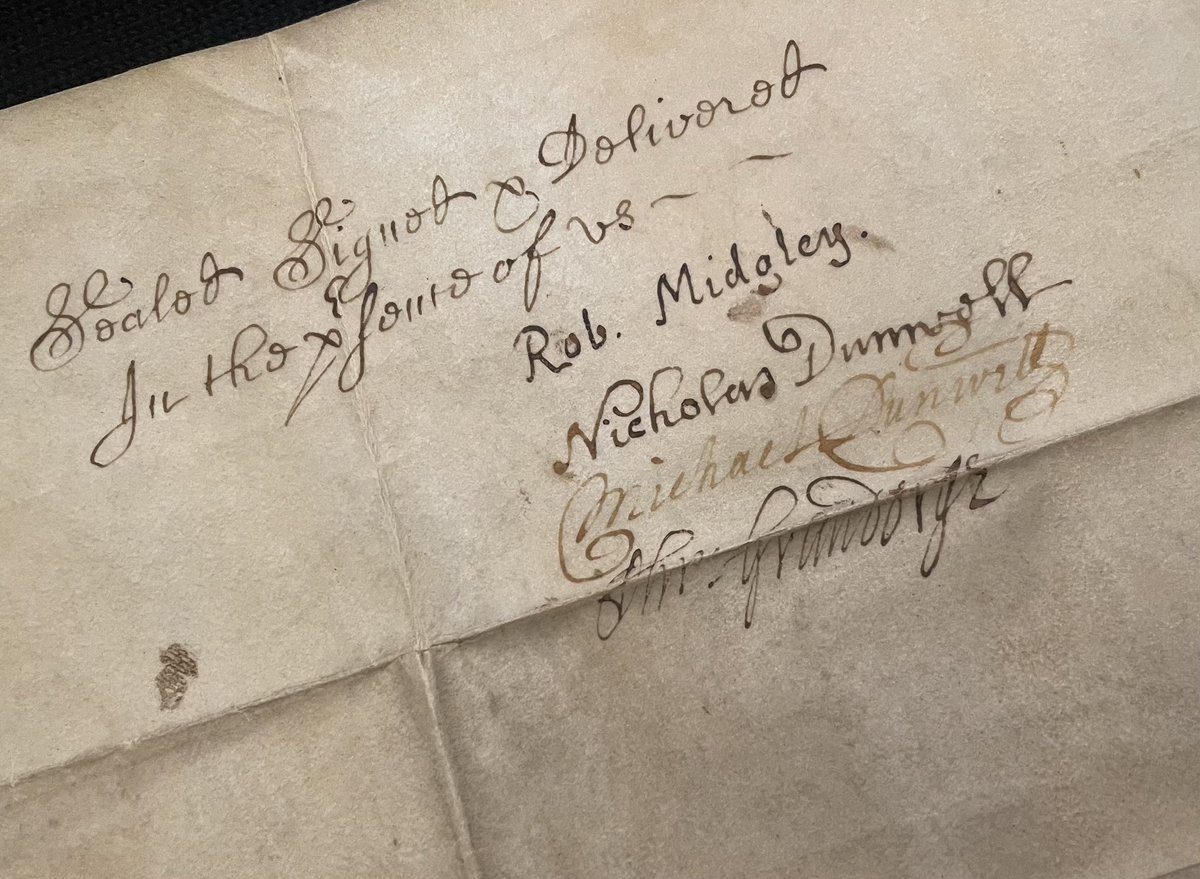 Sealed Signed & Delivered
In the p'sence of us
Rob. Midgley.
Nicholas Dunwell
Michael Dunwell
Chr: